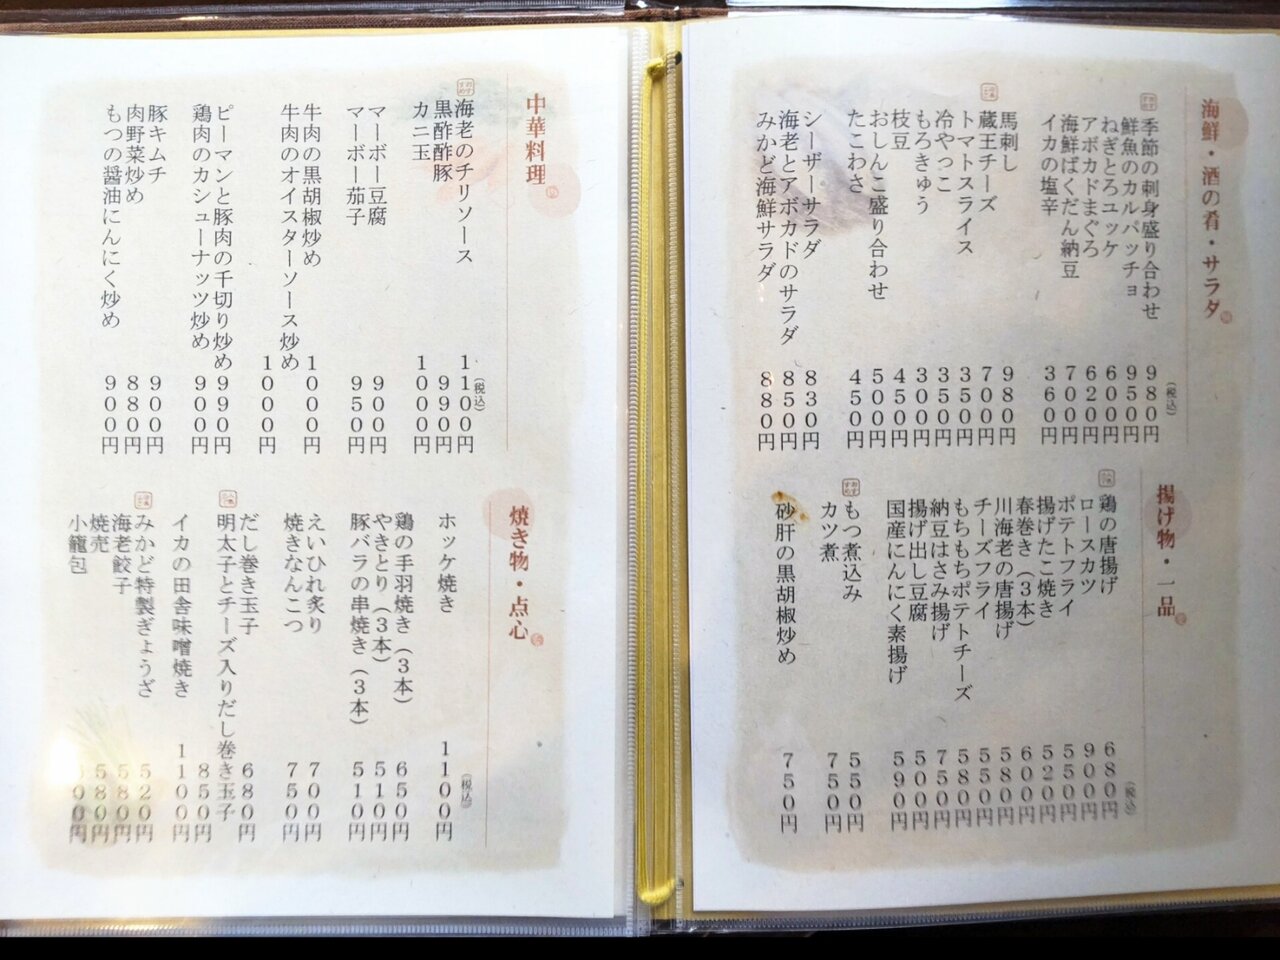 海鮮・酒の肴・サラダ
(税込)
おすすめ
季節の刺身盛り合わせ 980円
鮮魚のカルパッチョ 950円
ねぎとろユッケ 600円
アボカドまぐろ 620円
海鮮ばくだん納豆 700円
イカの塩辛 360円
馬刺し 980円
蔵王チーズ 700円
トマトスライス 350円
冷やっこ 350円
もろきゅう 300円
枝豆 450円
おしんこ盛り合わせ 500円
たこわさ 450円
シーザーサラダ 830円
海老とアボカドのサラダ 850円
みかど海鮮サラダ 880円
揚げ物・一品
(税込)
鶏の唐揚げ 680円
ロースカツ 900円
ポテトフライ 550円
揚げたこ焼き 520円
春巻き(3本) 600円
川海老の唐揚げ 550円
チーズフライ 580円
もちもちポテトチーズ 580円
納豆はさみ揚げ 750円
揚げ出し豆腐 500円
国産にんにく素揚げ 590円
おすすめ
もつ煮込み 550円
カツ煮 750円
砂肝の黒胡椒炒め 750円
中華料理
(税込)
おすすめ
海老のチリソース 1100円
黒酢酢豚 990円
カニ玉 1000円
マーボー豆腐 900円
マーボー茄子 950円
牛肉の黒胡椒炒め 1000円
牛肉のオイスターソース炒め 1000円
ピーマンと豚肉の千切り炒め 990円
鶏肉のカシューナッツ炒め 900円
豚キムチ 900円
肉野菜炒め 880円
もつの醤油にんにく炒め 900円
焼き物・点心
(税込)
ホッケ焼き 1100円
鶏の手羽焼き(3本) 650円
やきとり(3本) 510円
豚バラの串焼き(3本) 510円
えいひれ炙り 700円
焼きなんこつ 750円
だし巻き玉子 680円
明太子とチーズ入りだし巻き玉子 850円
イカの田舎味噌焼き 1100円
みかど特製ぎょうざ 520円
海老餃子 580円
焼売 580円
小籠包